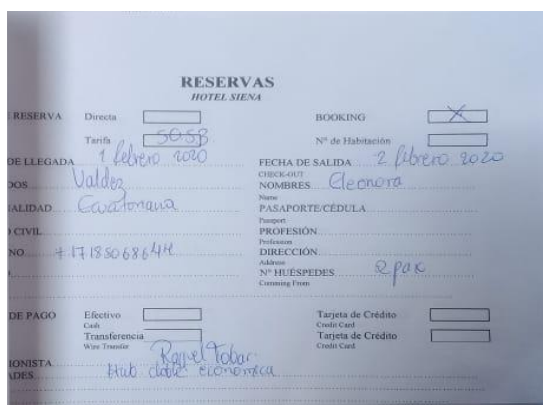 RESERVAS
HOTEL SIENA
RESERVA Directa BOOKING X
Tarifa Nº de Habitación
DE LLEGADA 1 febrero 2020 FECHA DE SALIDA 2 febrero 2020
CHECK-OUT
DOS Valdez NOMBRES Eleonora
Name
ALIDAD PASAPORTE/CÉDULA
Passport
CIVIL PROFESIÓN
Profession
NO DIRECCIÓN
Address
Nº HUÉSPEDES 2 pax
Comming From
DE PAGO Efectivo Tarjeta de Crédito
Cash Credit Card
Transferencia Tarjeta de Crédito
Wire Transfer Credit Card
IONISTA Raquel Tobar
ADES Hab doble económica